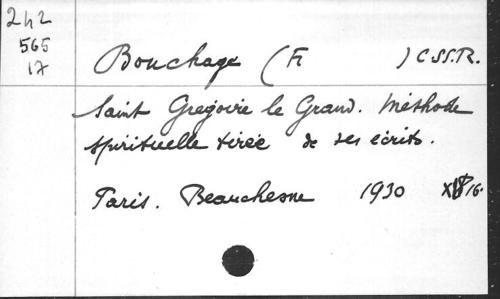 242
565
17
Bouchage (F. ) C.SS.R.
Saint Grégoire le Grand. Méthode
spirituelle tirée de ses écrits.
Paris. Beauchesne 1930 16.